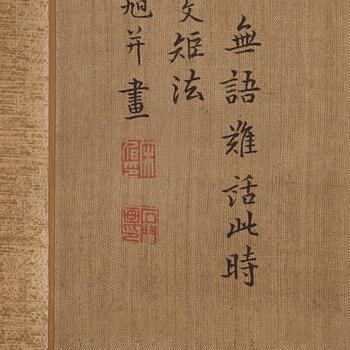 無語難話此時
文矩法
旭并畫